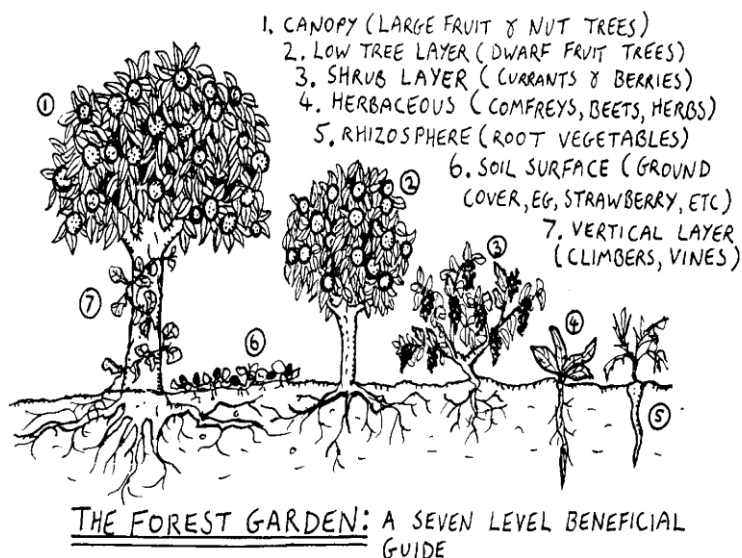 1. CANOPY (LARGE FRUIT & NUT TREES)
2. LOW TREE LAYER (DWARF FRUIT TREES)
3. SHRUB LAYER (CURRANTS & BERRIES)
4. HERBACEOUS (COMFREYS, BEETS, HERBS)
5. RHIZOSPHERE (ROOT VEGETABLES)
6. SOIL SURFACE (GROUND
COVER, EG, STRAWBERRY, ETC)
7. VERTICAL LAYER
(CLIMBERS, VINES)
1
2
3
7
6
4
5
THE FOREST GARDEN: A SEVEN LEVEL BENEFICIAL
GUIDE